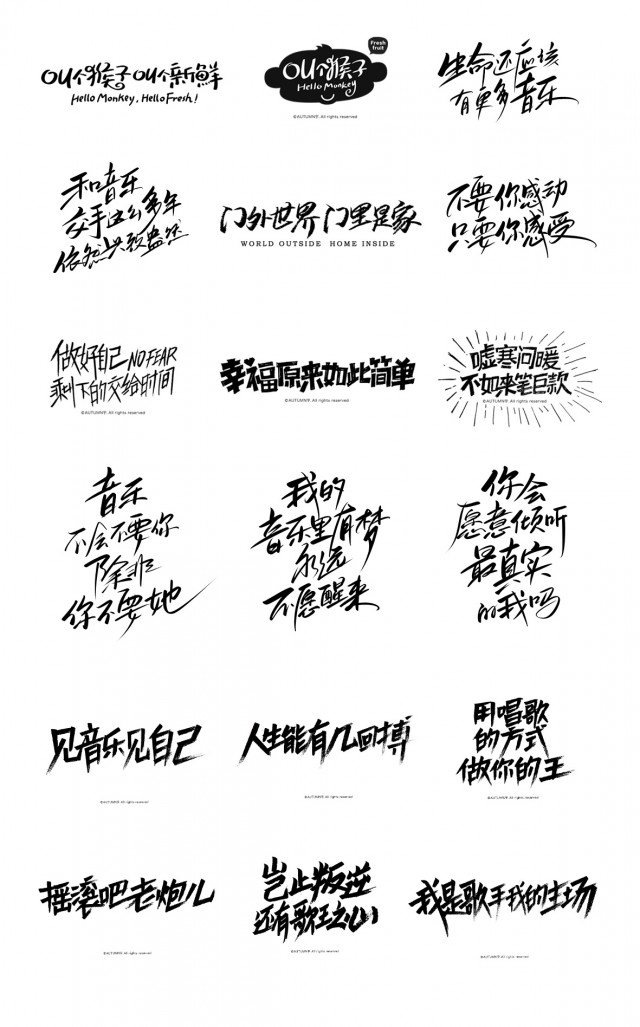 OU个猴子 OU个新鲜
Hello Monkey, Hello Fresh!
Fresh
fruit
OU个猴子
Hello Monkey
©AUTUMN® All rights reserved
生命还应该
有更多音乐
和音乐
交手这么多年
依然兴致盎然
门外世界 门里是家
WORLD OUTSIDE HOME INSIDE
不要你感动
只要你感受
做好自己 NO FEAR
剩下的交给时间
©AUTUMN® All rights reserved
幸福原来如此简单
©AUTUMN® All rights reserved
嘘寒问暖
不如来笔巨款
©AUTUMN® All rights reserved
音乐
不会不要你
除非
你不要她
我的
音乐里有梦
永远
不愿醒来
你会
愿意倾听
最真实
的我吗
见音乐见自己
©AUTUMN® All rights reserved
人生能有几回博
©AUTUMN® All rights reserved
用唱歌
的方式
做你的王
©AUTUMN® All rights reserved
摇滚吧老炮儿
©AUTUMN® All rights reserved
岂止叛逆
还有歌王之心
©AUTUMN® All rights reserved
我是歌手我的主场
©AUTUMN® All rights reserved